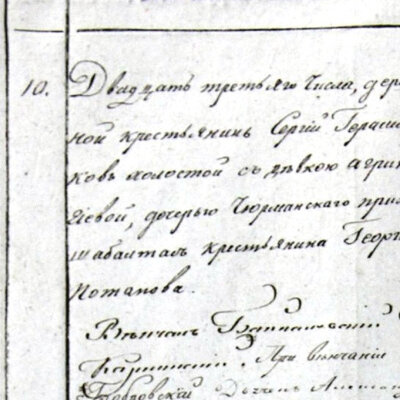 10. Двадцать третьяго числа, дер
ной крестьянинъ Сергій Гераси
ковъ холостой съ дѣвкою Агрип
гіевой, дочерью Чурманскаго при
крестьянина Георг
Потапова.
Вѣнчалъ
При вѣнчаніи
Бобровскій Дьячекъ